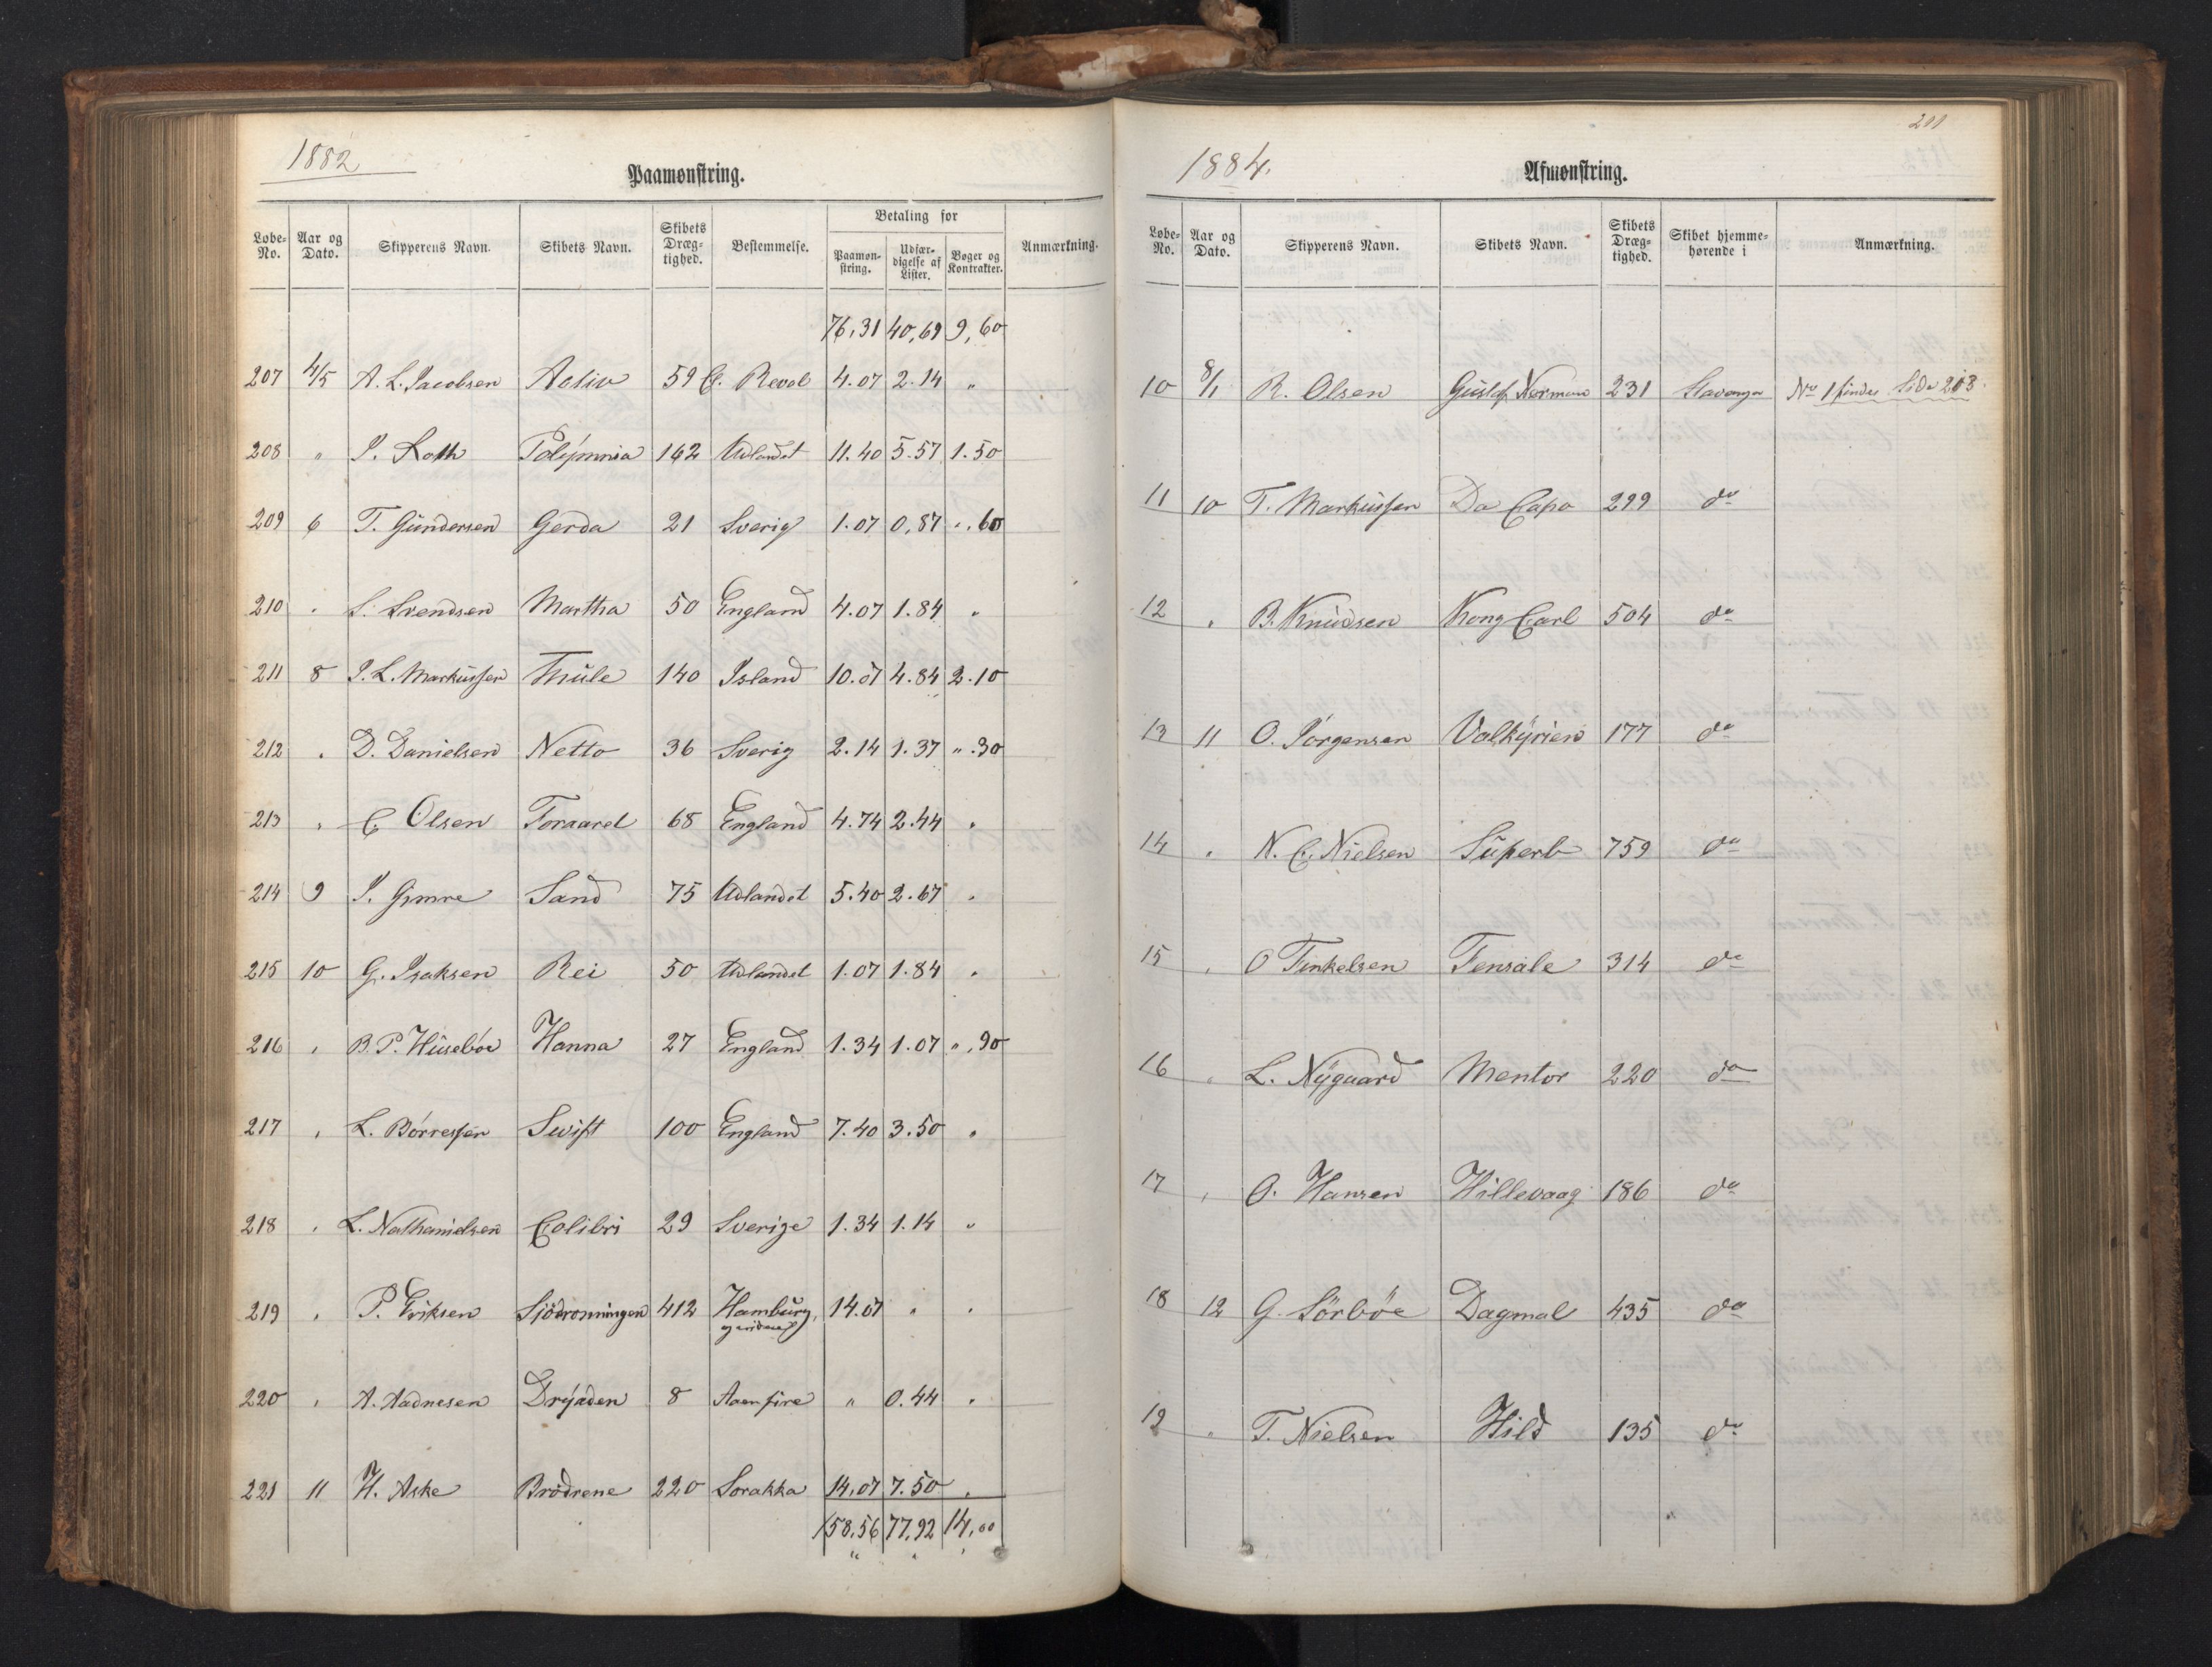 1882
Paamønstring.
Løbe-No. Aar og Dato. Skipperens Navn. Skibets Navn. Skibets Dræg-tighed. Bestemmelse. Betaling for Paamøn-string. Udfær-digelse af Lister. Bøger og Kontrakter. Anmærkning.
76,31 40,69 9,60
207 4/5 A. L. Jacobsen Activ 59 C. Reval 4.07 2.14 "
208 " I. Roth Polÿmnia 162 Udlandet 11.40 5.57 1.50
209 6 T. Gundersen Gerda 21 Sverig 1.07 0,87 ".60
210 " S. Svendsen Martha 50 England 4.07 1.84 "
211 8 I. L. Markussen Thule 140 Island 10.07 4.84 2.10
212 " D. Danielsen Netto 36 Sverig 2.14 1.37 ".30
213 " C Olsen Foraaret 68 England 4.74 2.44 "
214 9 I. Gimre Sand 75 Udlandet 5.40 2.67 "
215 10 G. Isaksen Rei 50 Udlandet 1.07 1.84 "
216 " B. P. Husebøe Hanna 27 England 1.34 1.07 ".90
217 " L. Børresen Swift 100 England 7.40 3.50 "
218 " L. Nathanielsen Colibri 29 Sverige 1.34 1.14 "
219 " P. Eriksen Sjödronningen 412 Hamburg, 14.07 " "
og videre
220 " A. Aadnesen Drÿaden 8 " 0.44 "
221 11 H. Aske Brødrene 220 Sorakka 14,07 7.50 "
158,56 77,92 14,00
211
1884.
Afmønstring.
Løbe-No. Aar og Dato. Skipperens Navn. Skibets Navn. Skibets Dræg-tighed. Skibet hjemme-hørende i Anmærkning.
10 8/1 R. Olsen Gustaf Norman 231 Stavanger No 1 findes Side 213.
11 10 T. Markussen Da Capo 299 do
12 " B. Knudsen Kong Carl 504 do
13 11 O. Jørgensen Valkÿrien 177 do
14 " N. C. Nielsen Superb 759 do
15 " O Tinkelsen Fensale 314 do
16 " L. Nÿgaard Mentor 220 do
17 " O. Hansen Hillevaag 186 do
18 12 G. Sörböe Dagmal 435 do
19 " T. Nielsen Hild 135 do